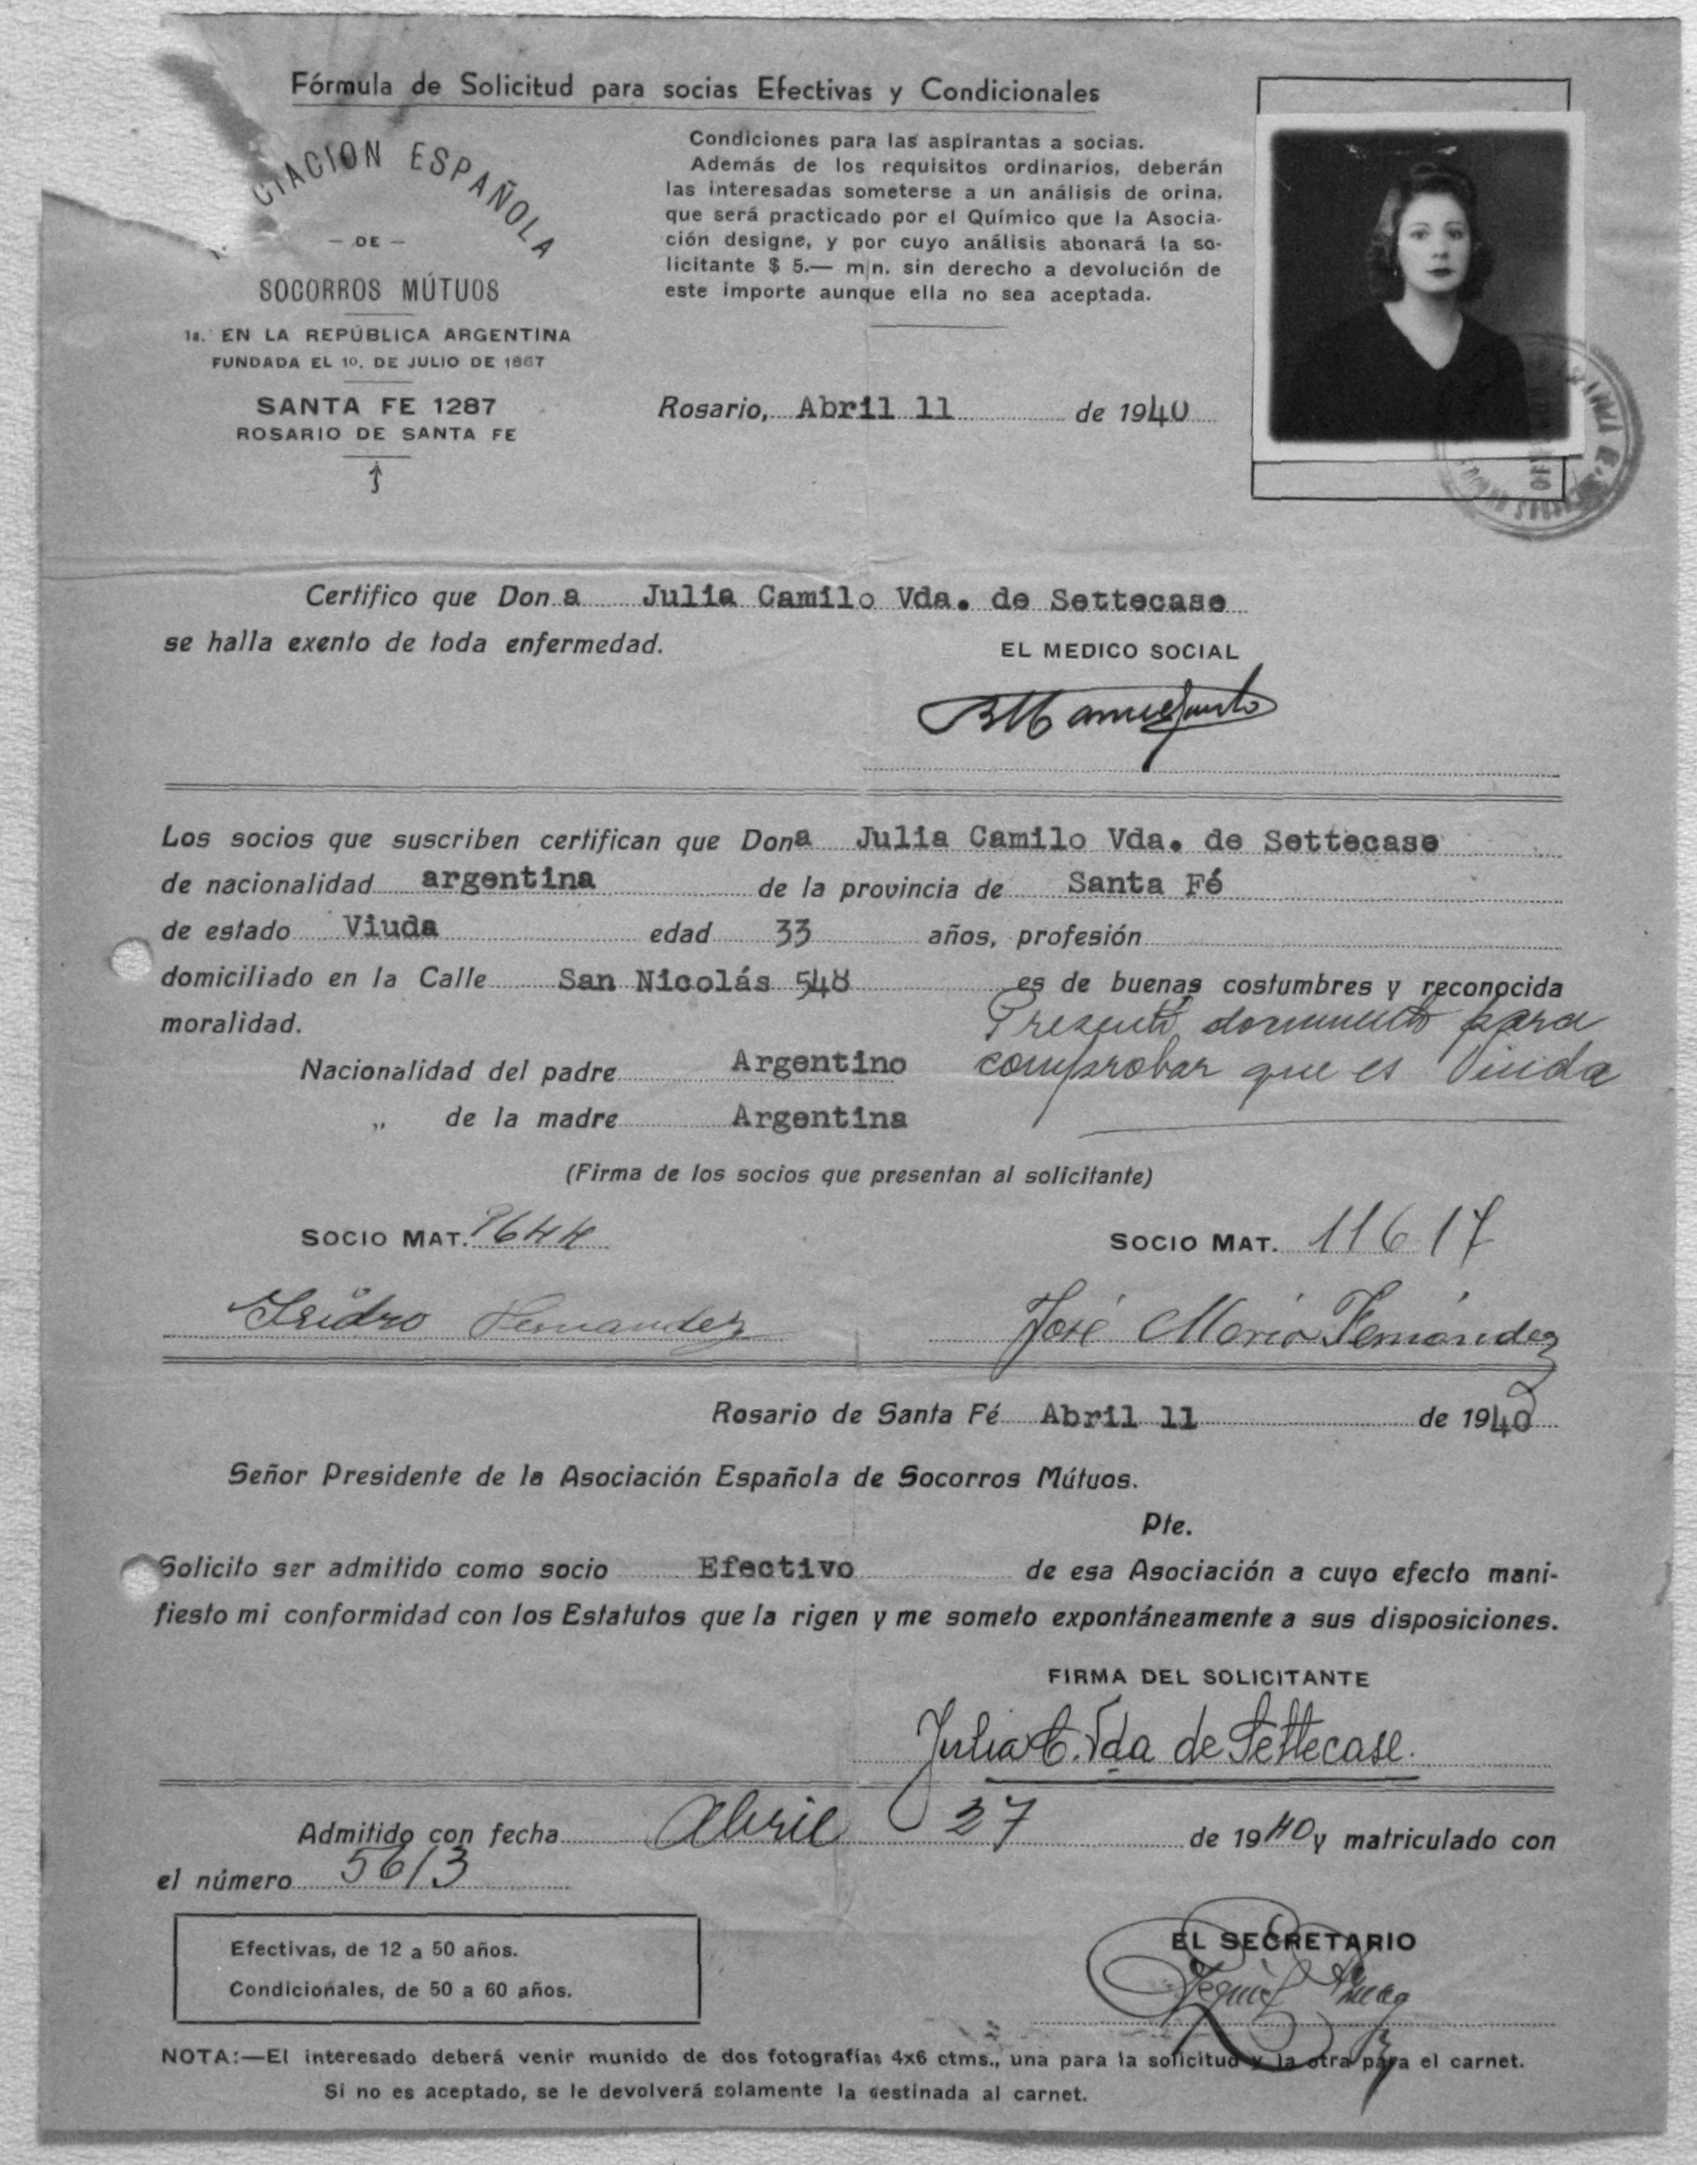 Fórmula de Solicitud para socias Efectivas y Condicionales
CIACION ESPAÑOLA
— DE —
SOCORROS MÚTUOS
1a. EN LA REPÚBLICA ARGENTINA
FUNDADA EL 10. DE JULIO DE 1867
SANTA FE 1287
ROSARIO DE SANTA FE
Condiciones para las aspirantas a socias.
Además de los requisitos ordinarios, deberán
las interesadas someterse a un análisis de orina,
que será practicado por el Químico que la Asocia-
ción designe, y por cuyo análisis abonará la so-
licitante $ 5.— m|n. sin derecho a devolución de
este importe aunque ella no sea aceptada.
Rosario, Abril 11 de 1940
Certifico que Dona Julia Camilo Vda. de Settecase
se halla exento de toda enfermedad.
EL MEDICO SOCIAL
Los socios que suscriben certifican que Dona Julia Camilo Vda. de Settecase
de nacionalidad argentina de la provincia de Santa Fé
de estado Viuda edad 33 años, profesión
domiciliado en la Calle San Nicolás 548 es de buenas costumbres y reconocida
moralidad.
Presentó documento para
comprobar que es Viuda
Nacionalidad del padre Argentino
„ de la madre Argentina
(Firma de los socios que presentan al solicitante)
SOCIO MAT. 9644 SOCIO MAT. 11617
Isidro Hernandez José María Fernández
Rosario de Santa Fé Abril 11 de 1940
Señor Presidente de la Asociación Española de Socorros Mútuos.
Pte.
Solicito ser admitido como socio Efectivo de esa Asociación a cuyo efecto mani-
fiesto mi conformidad con los Estatutos que la rigen y me someto expontáneamente a sus disposiciones.
FIRMA DEL SOLICITANTE
Julia C. Vda de Settecase.
Admitido con fecha Abril 27 de 1940 y matriculado con
el número 5613
Efectivas, de 12 a 50 años.
Condicionales, de 50 a 60 años.
EL SECRETARIO
NOTA:—El interesado deberá venir munido de dos fotografías 4x6 ctms., una para la solicitud y la otra para el carnet.
Si no es aceptado, se le devolverá solamente la destinada al carnet.